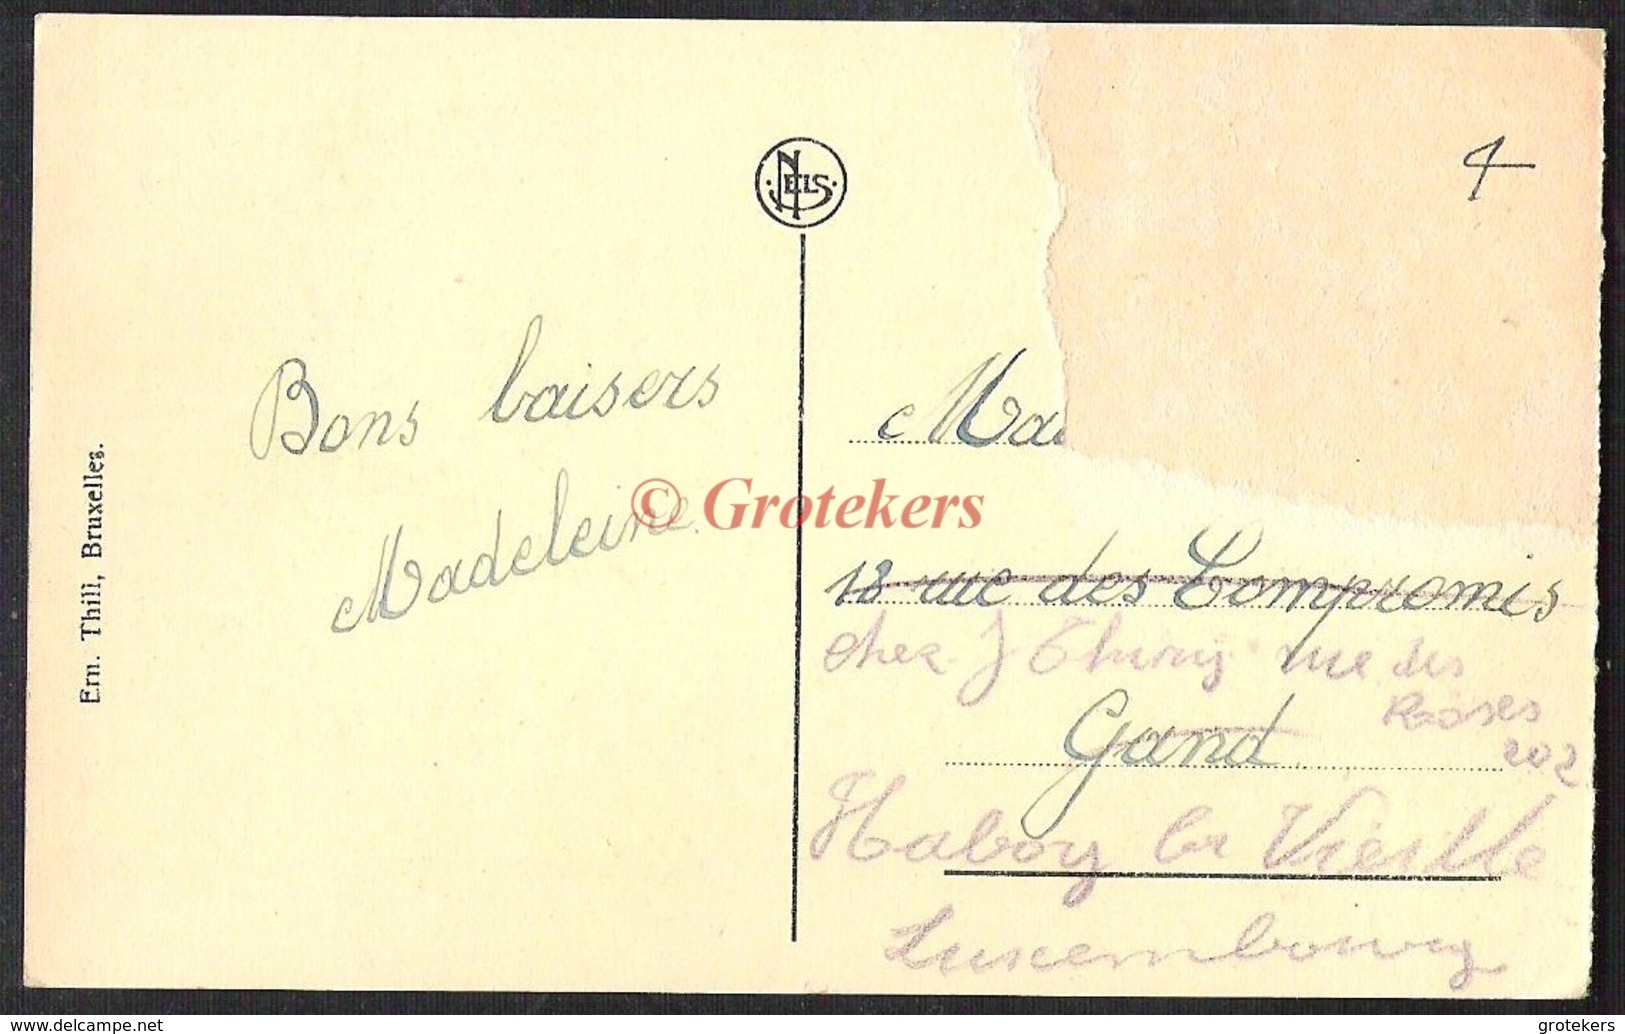 NELS
4
Bons baisers
Madeleine.
Ma
18 rue des Compromis
chez J Thiry rue des
Roses
202
Gand
Habay la Vieille
Luxembourg
Ern. Thill, Bruxelles.
© Grotekers
https://www.delcampe.net/item/1037261143.html
grotekers